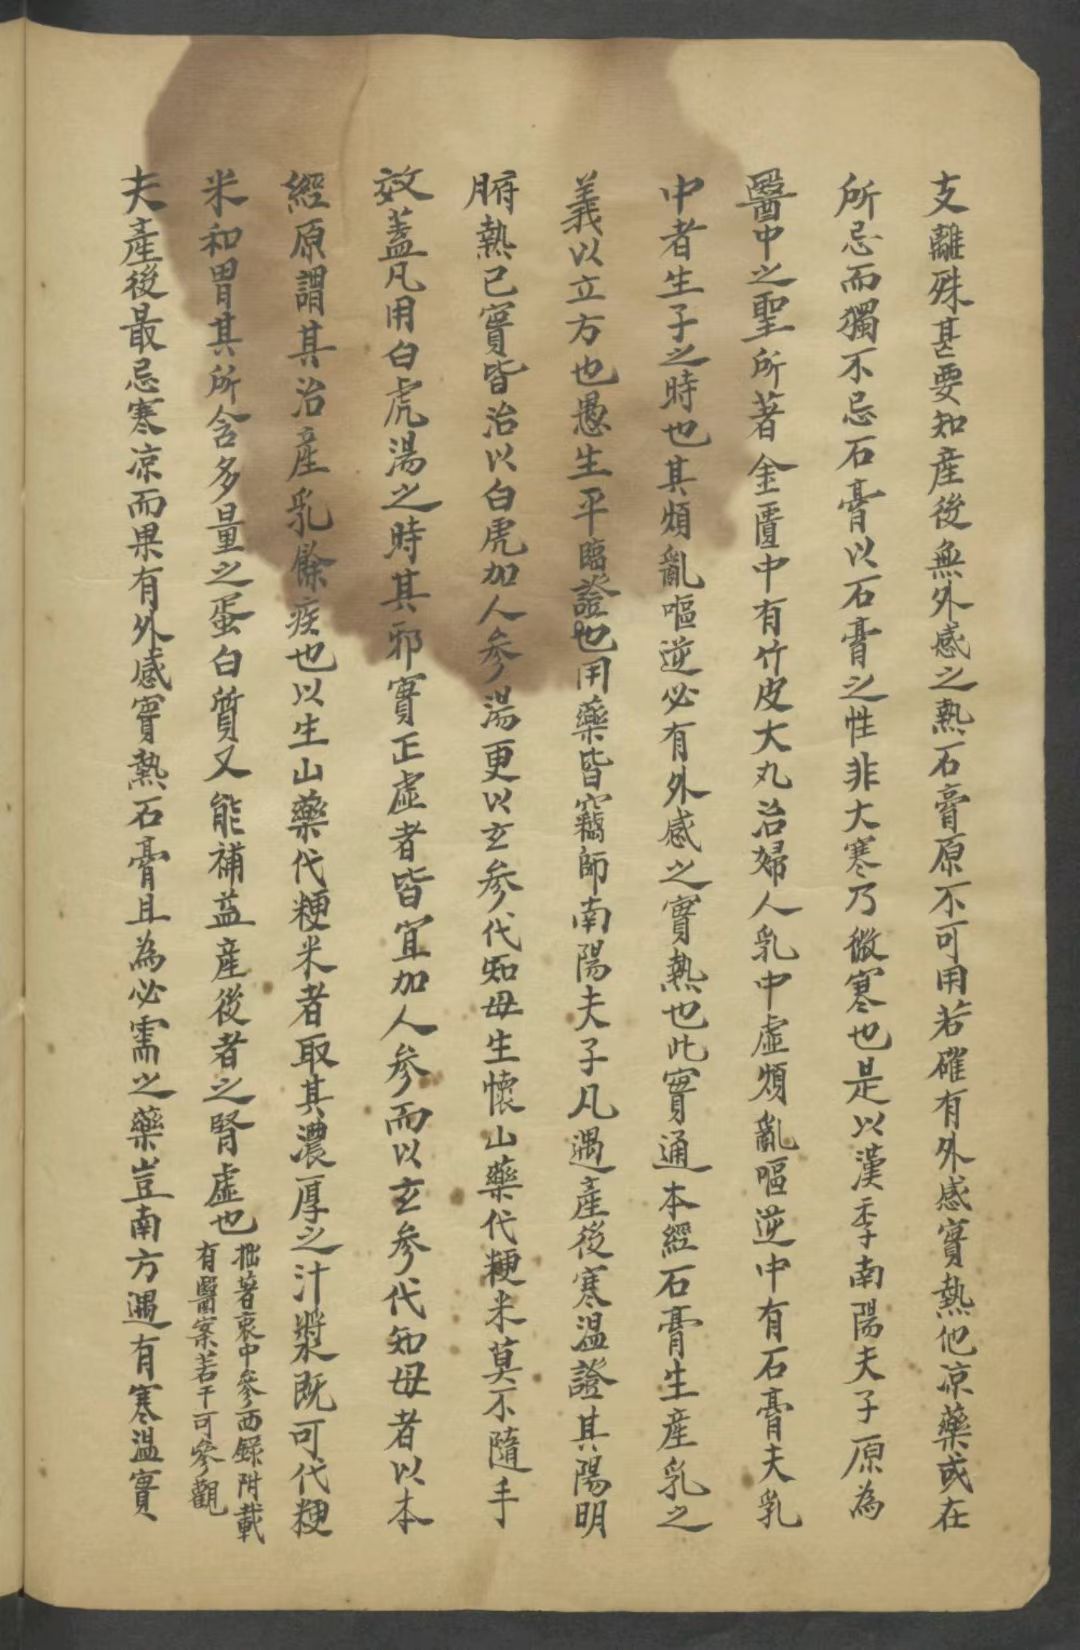 支離殊甚要知産後無外感之熱石膏原不可用若確有外感實熱他凉藥或在
所忌而獨不忌石膏以石膏之性非大寒乃微寒也是以漢季南陽夫子原為
醫中之聖所著金匱中有竹皮大丸治婦人乳中虛煩亂嘔逆中有石膏夫乳
中者生子之時也其煩亂嘔逆必有外感之實熱也此實通本經石膏生産乳之
義以立方也愚生平臨證也用藥皆竊師南陽夫子凡遇産後寒温證其陽明
腑熱已實皆治以白虎加人参湯更以玄参代知母生懷山藥代粳米莫不隨手
效蓋凡用白虎湯之時其邪實正虛者皆宜加人参而以玄参代知母者以本
經原謂其治産乳餘疾也以生山藥代粳米者取其濃厚之汁漿既可代粳
米和胃其所含多量之蛋白質又能補益産後者之腎虛也
拙著衷中參西録附載
有醫案若干可參觀
夫産後最忌寒凉而果有外感實熱石膏且為必需之藥豈南方遇有寒温實